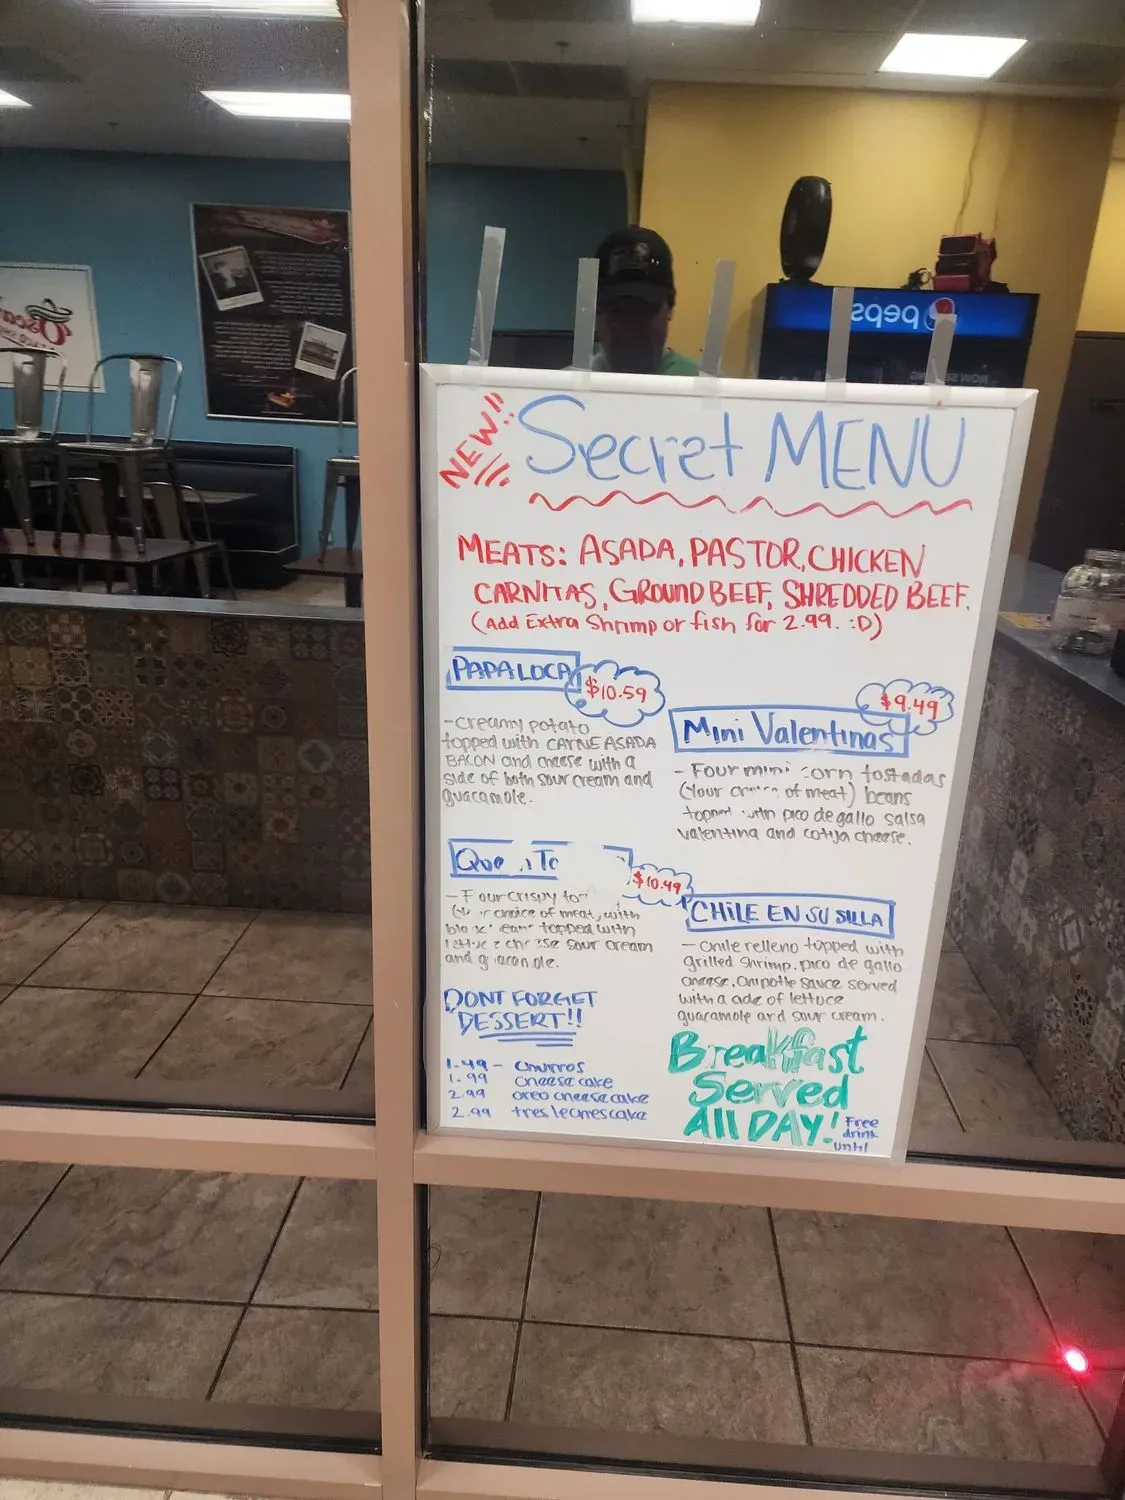 NEW!!
Secret MENU
MEATS: ASADA, PASTOR, CHICKEN
CARNITAS, GROUND BEEF, SHREDDED BEEF.
(Add Extra Shrimp or fish for 2.99. :D)
PAPA LOCA
$10.59
-Creamy potato
topped with CARNE ASADA
BACON and cheese with a
side of both sour cream and
guacamole.
$9.49
Mini Valentinas
- Four mini corn tostadas
(Your choice of meat) beans
topped with pico de gallo salsa
valentina and cotija cheese.
$10.49
-Four crispy
choice of meat, with
topped with
sour cream
and
CHILE EN SU SILLA
- Chile relleno topped with
grilled shrimp. pico de gallo
cheese. Chipotle sauce served
with a side of lettuce
guacamole and sour cream.
DONT FORGET
DESSERT!!
1.49 - churros
1.99 cheese cake
2.99 oreo cheese cake
2.99 tres leches cake
Breakfast
Served
All DAY!
Free
drink
until
pepsi